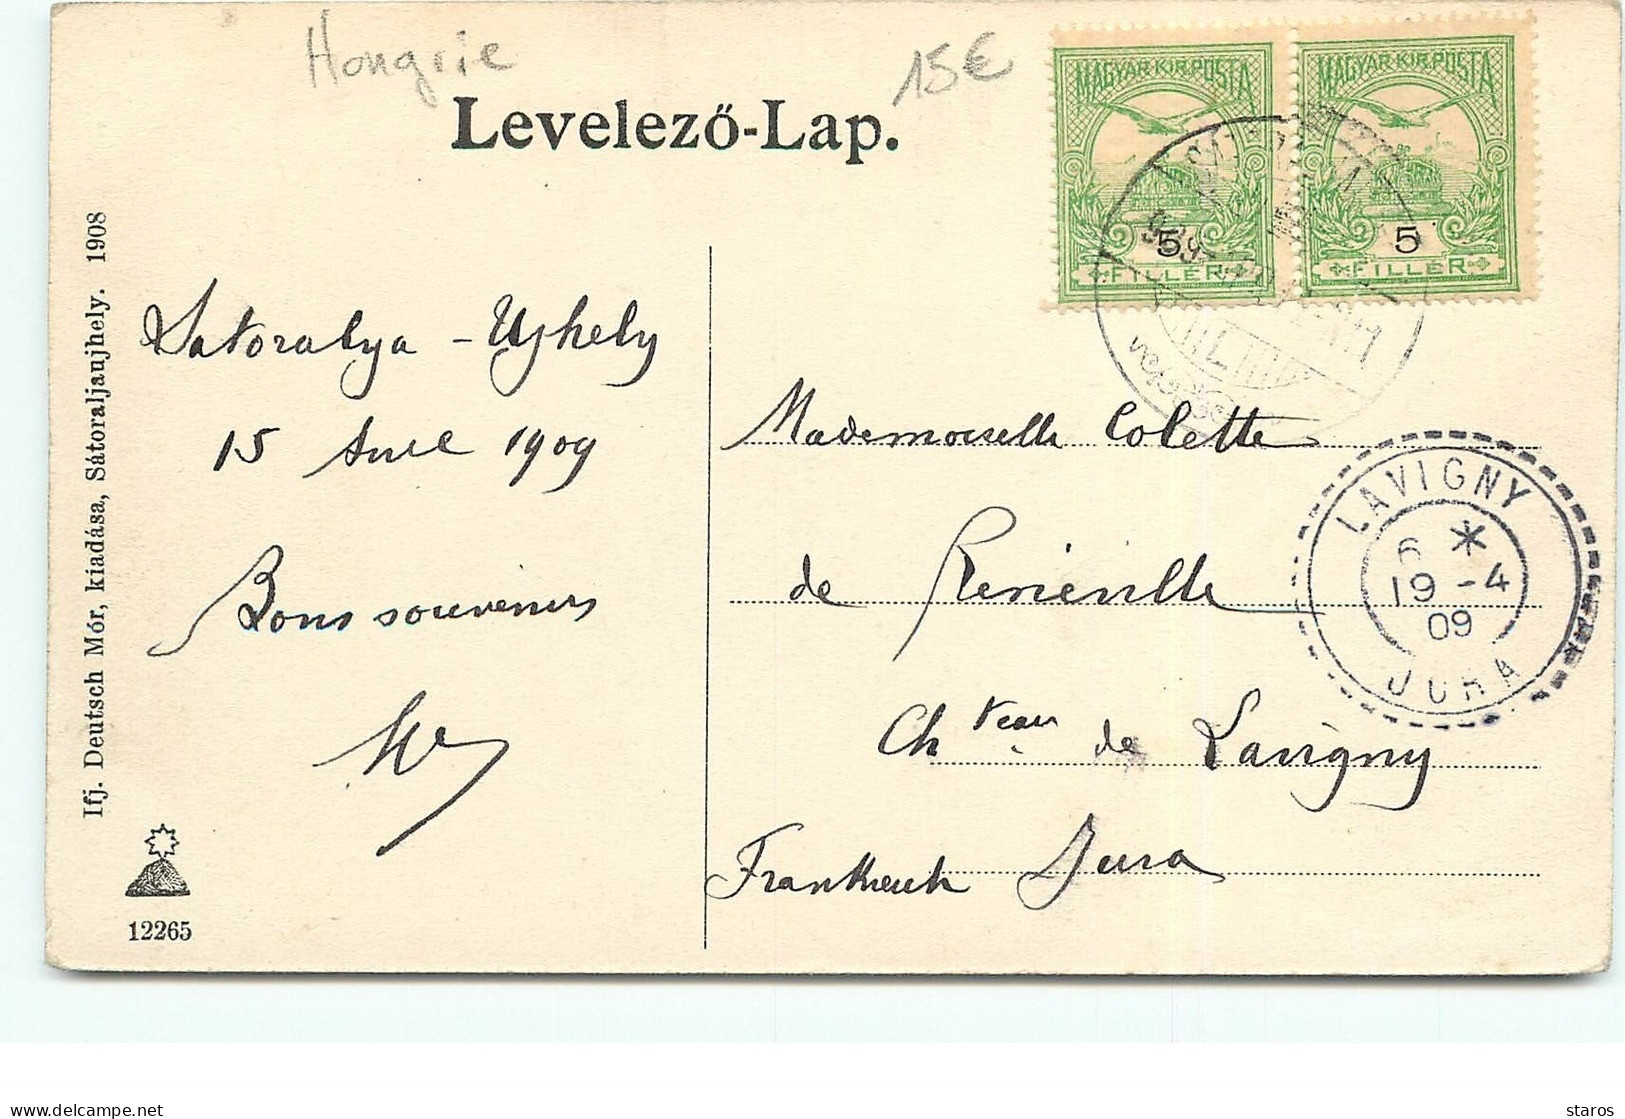 Hongrie
15€
Levelező-Lap.
MAGYAR KIR. POSTA
5
FILLÉR
MAGYAR KIR. POSTA
5
FILLÉR
Satoralya - Ujhely
15 Avril 1909
Bons souvenirs
Mademoiselle Colette
de
Chteau de Lavigny
Frankreich Jura
LAVIGNY
6 *
19 -4
09
JURA
Ifj. Deutsch Mór, kiadása, Sátoraljaujhely. 1908
12265
delcampe.net
staros